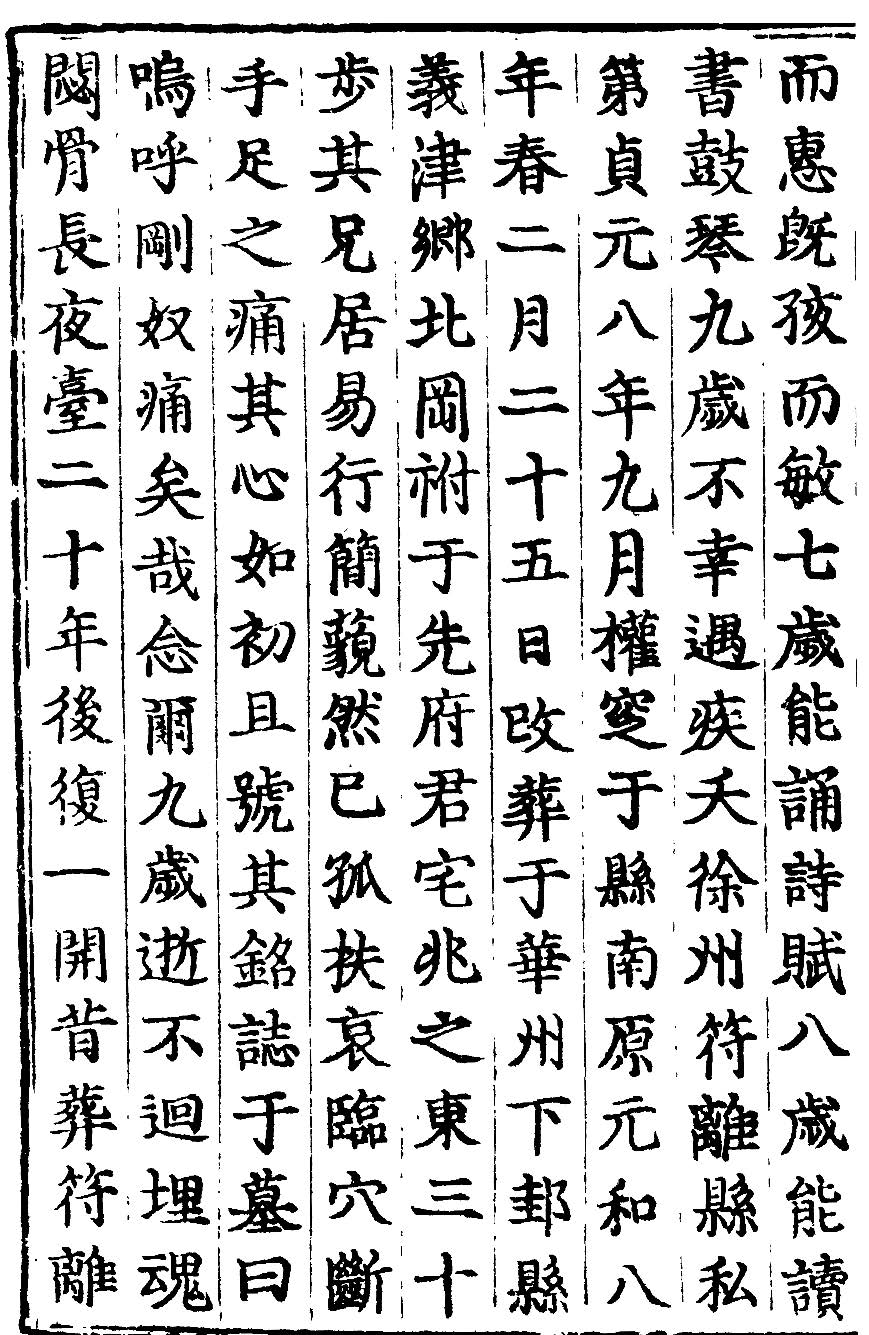 而惠旣孩而敏七歲能誦詩賦八歲能讀
書鼓琴九歲不幸遇疾夭徐州符離縣私
第貞元八年九月權窆于縣南原元和八
年春二月二十五日改葬于華州下邽縣
義津鄉北岡祔于先府君宅兆之東三十
步其兄居易行簡藐然已孤扶哀臨穴斷
手足之痛其心如初且號其銘誌于墓曰
嗚呼剛奴痛矣哉念爾九歲逝不迴埋魂
閟骨長夜臺二十年後復一開昔葬符離